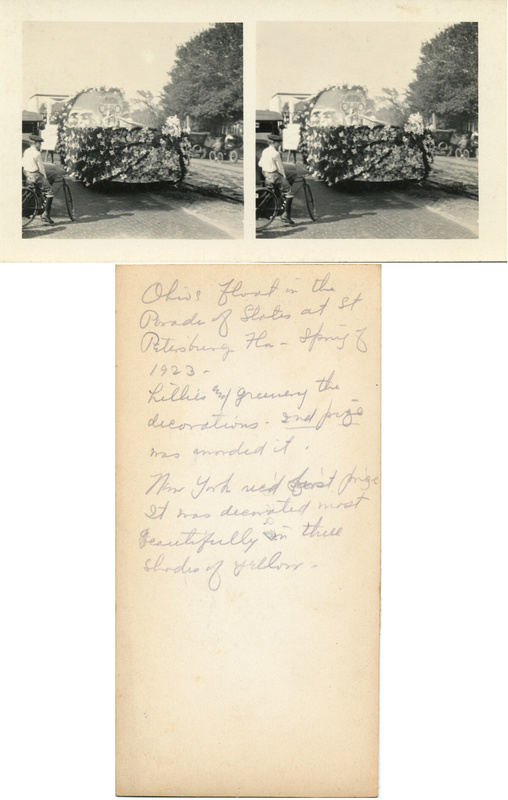 Ohios Float in the
Parade of States at St
Petersburg Fla - Spring of
1923 -
Lillies and greenery the
decorations. 2nd prize
was awarded it.
New York rec'd first prize
It was decorated most
beautifully in three
shades of yellow -